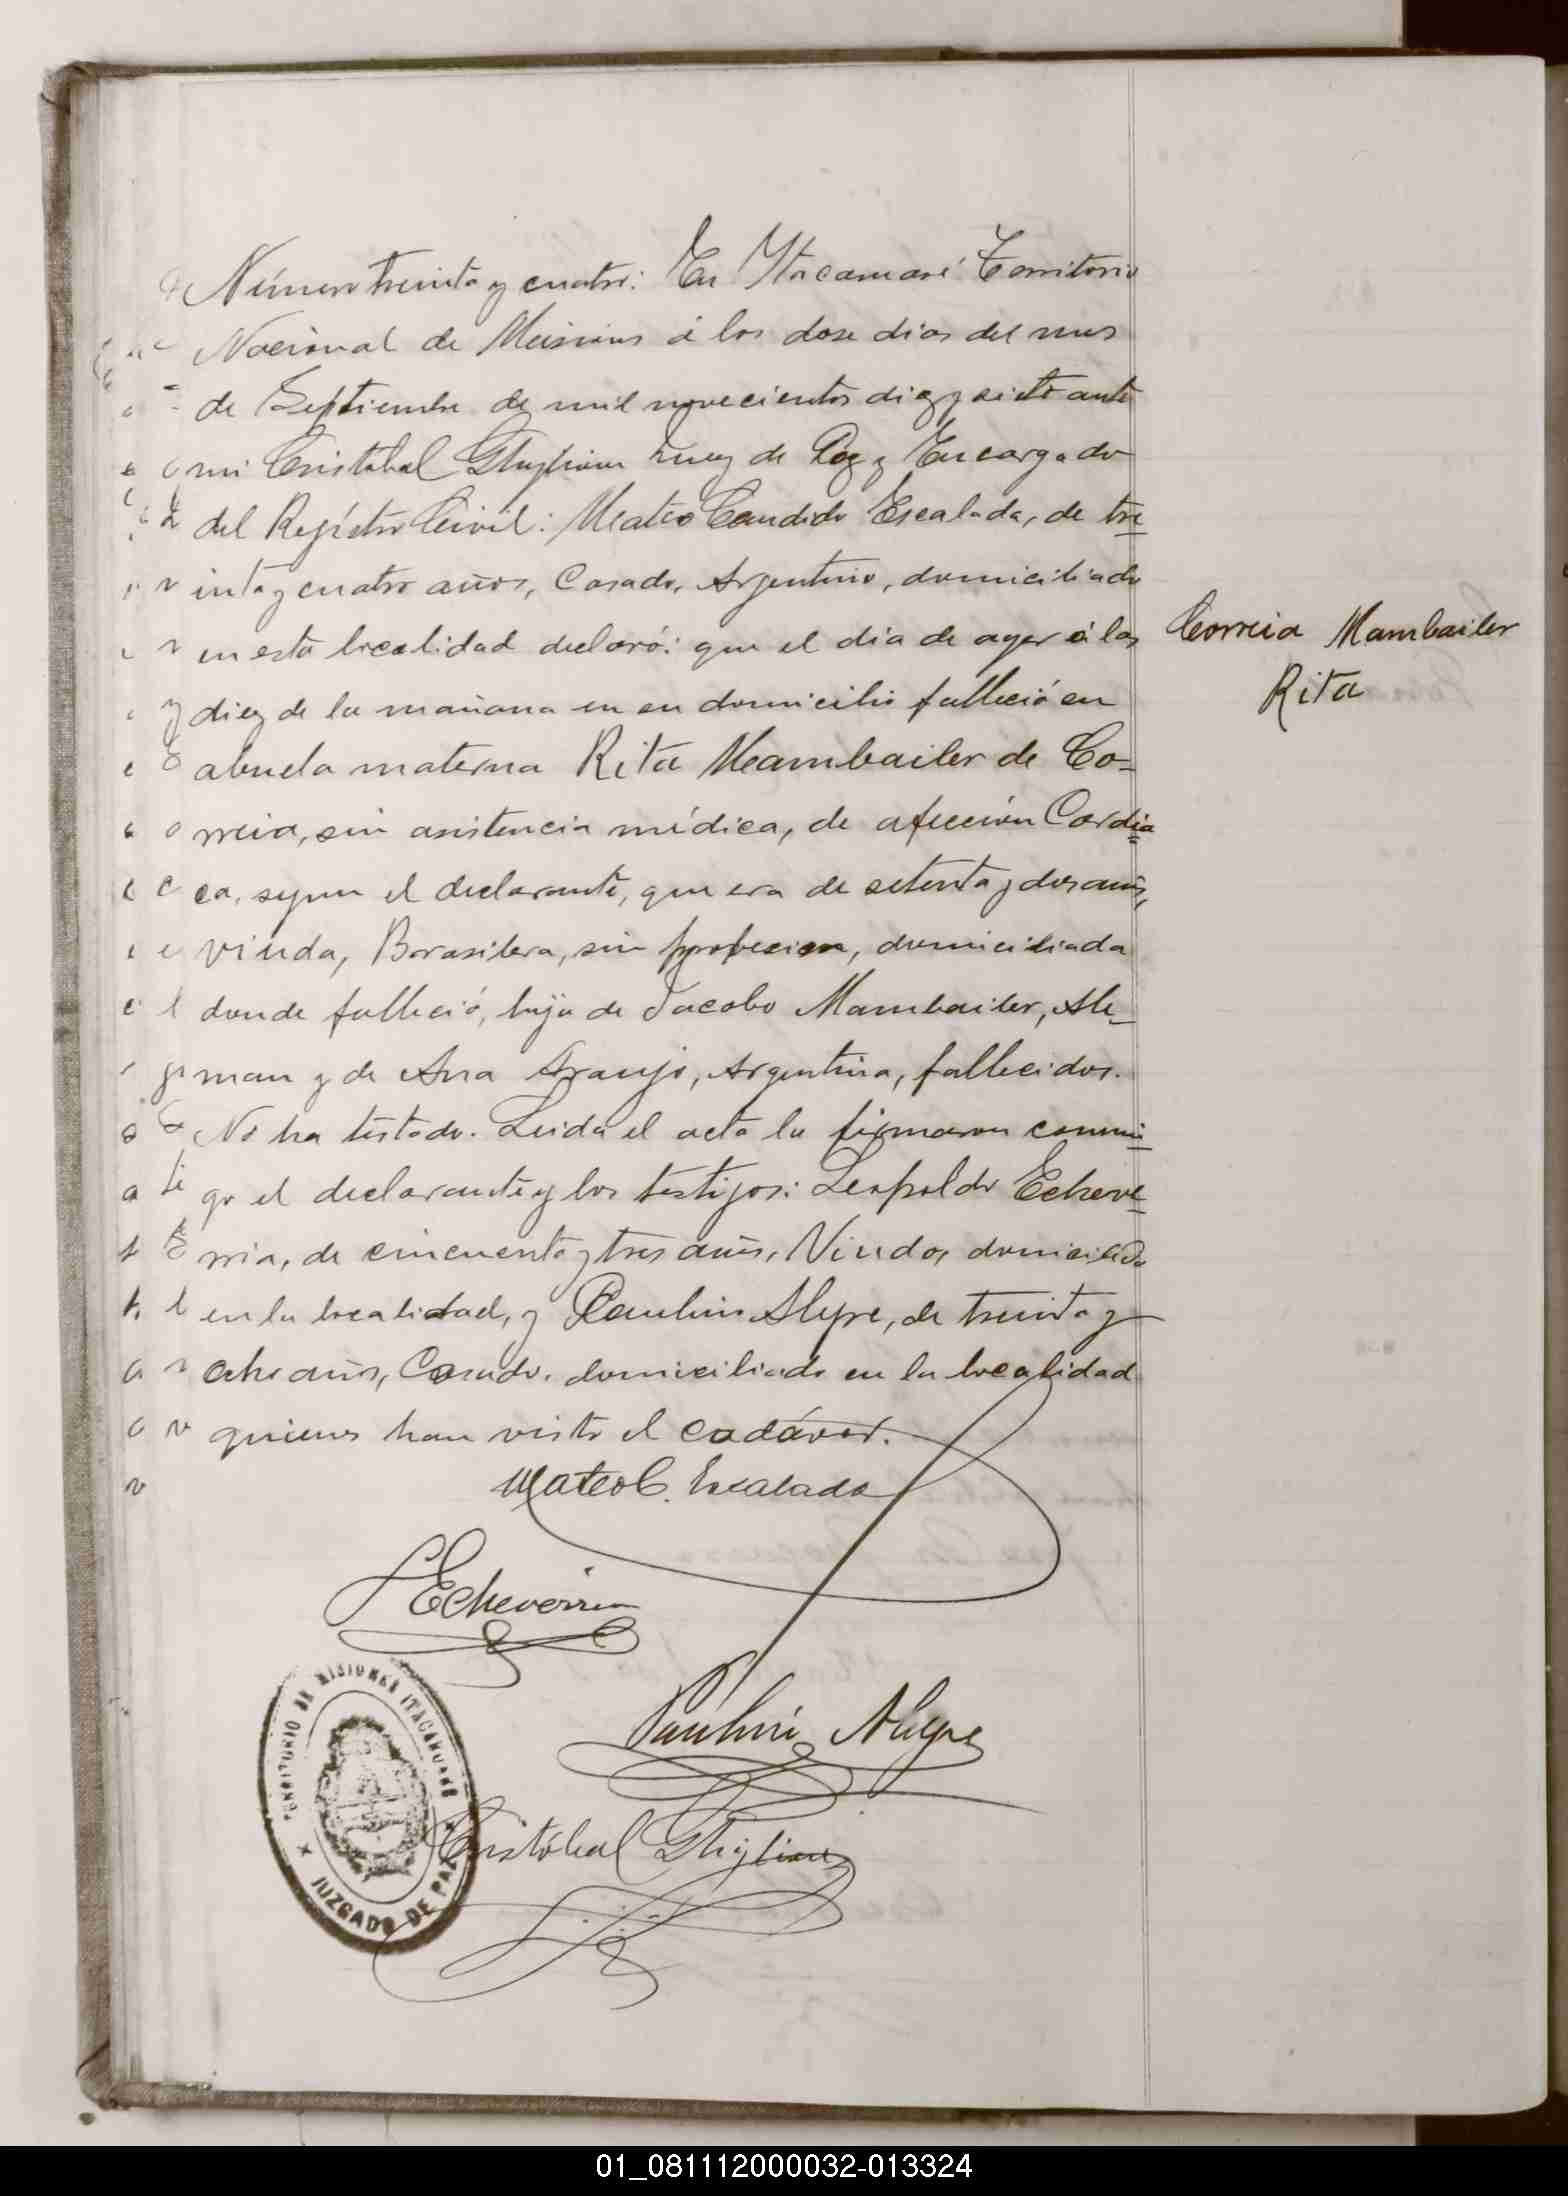 Número treinta y cuatro: En Itacaruaré Territorio
Nacional de Misiones á los dose dias del mes
de Septiembre de mil novecientos diez y siete ante
mi Cristóbal Ghigliani Juez de Paz y Encargado
del Registro Civil: Mateo Candido Escalada, de tre
inta y cuatro años, Casado, Argentino, domiciliado
en esta localidad declaró: que el dia de ayer á las
diez de la mañana en su domicilio falleció su
abuela materna Rita Mambailer de Co-
rreia, sin asistencia médica, de afección Cardia
ca, segun el declarante, que era de setenta y dos años,
viuda, Brasilera, sin profesion, domiciliada
donde falleció, hija de Jacobo Mambailer, Ale-
man y de Ana Araujo, Argentina, fallecidos.
No ha testado. Leida el acta la firmaron conmi
go el declarante y los testigos: Leopoldo Echeve
rria, de cincuenta y tres años, Viudo, domiciliado
en la localidad, y Paulino Alegre, de treinta y
ocho años, Casado, domiciliado en la localidad
quienes han visto el cadáver.
Mateo C. Escalada
L Echeverria
Paulino Alegre
Cristóbal Ghigliani
Correia Mambailer
Rita
TERRITORIO DE MISIONES ITACARUARÉ
JUZGADO DE PAZ
01_081112000032-013324